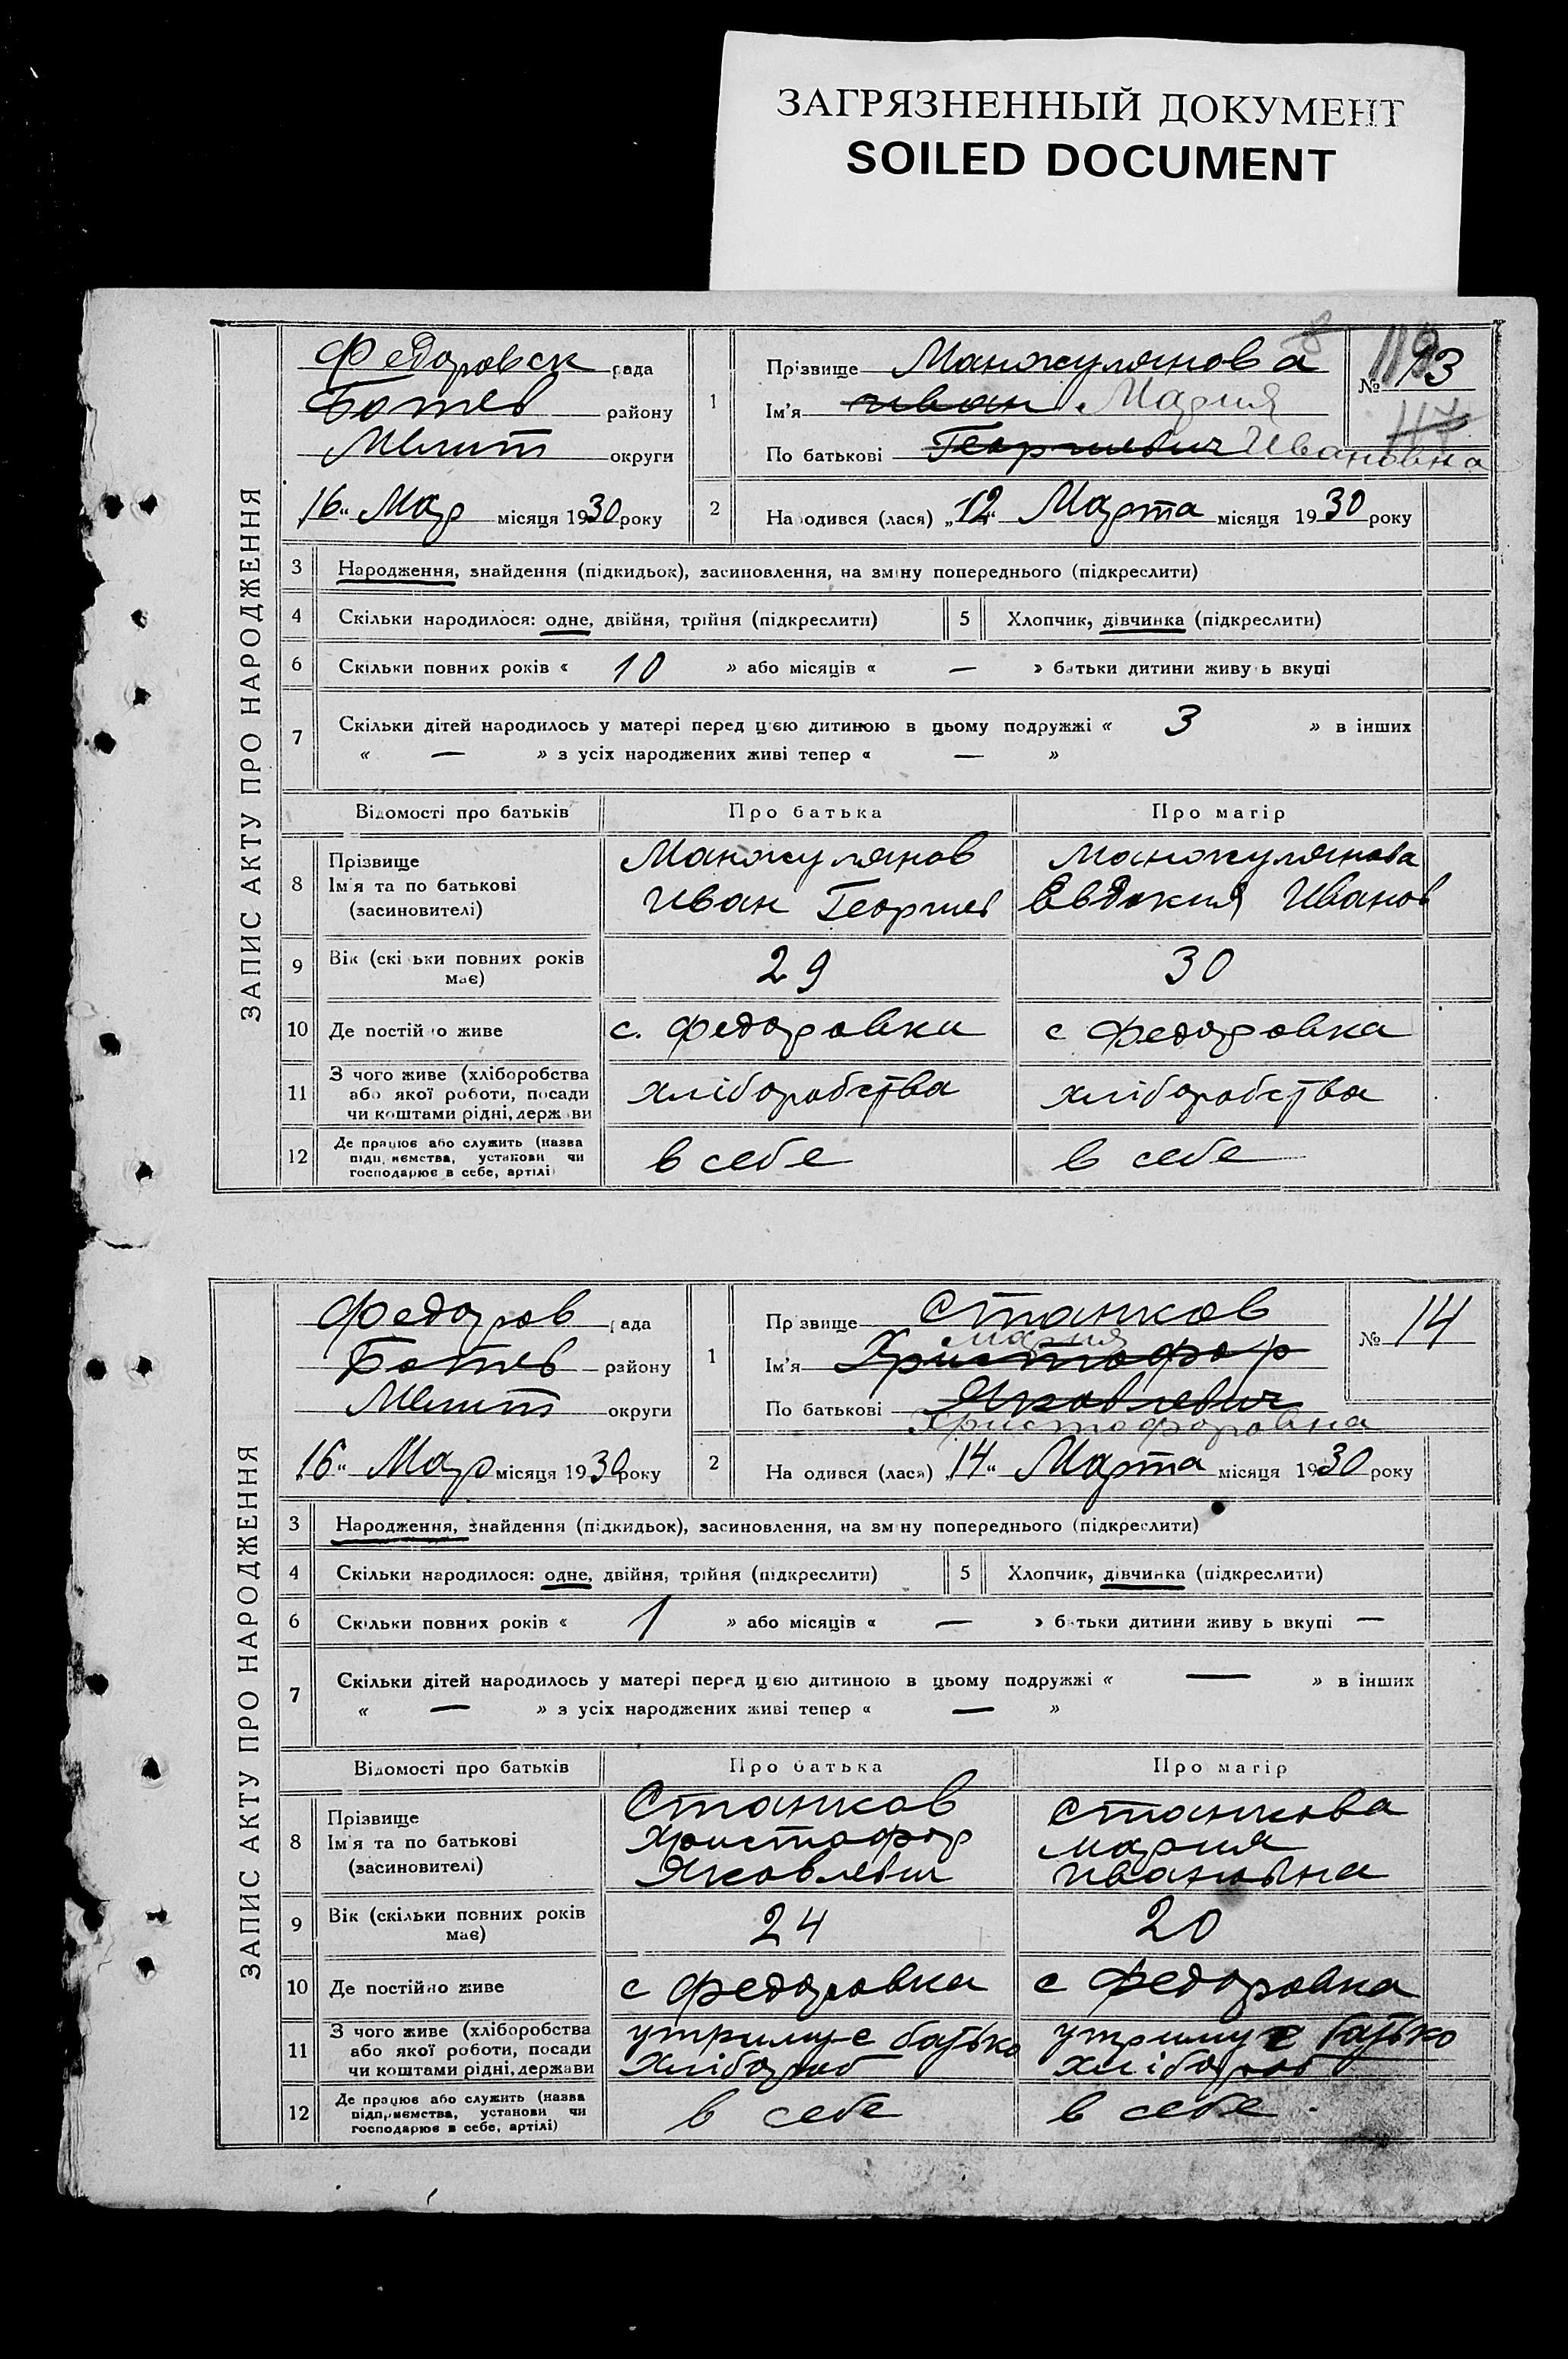 ЗАГРЯЗНЕННЫЙ ДОКУМЕНТ
SOILED DOCUMENT
ЗАПИС АКТУ ПРО НАРОДЖЕННЯ
Федоровск рада
Ботев району
Мелит округи
„16“ Мар місяця 1930 року
1 Прізвище Манжулянова
Ім'я Иван Мария
По батькові Георгиевич Ивановна
№ 13
119
47
2 Народився (лася) „12“ Марта місяця 1930 року
3 Народження, знайдення (підкидьок), засиновлення, на зміну попереднього (підкреслити)
4 Скільки народилося: одне, двійня, трійня (підкреслити) 5 Хлопчик, дівчинка (підкреслити)
6 Скільки повних років « 10 » або місяців « — » батьки дитини живуть вкупі
7 Скільки дітей народилось у матері перед цією дитиною в цьому подружжі « 3 » в інших
« — » з усіх народжених живі тепер « — »
Відомості про батьків Про батька Про матір
8 Прізвище Ім'я та по батькові (засиновителі)
Манжулянов Иван Георгиев
Манжулянова Евдокия Иванов
9 Вік (скільки повних років має) 29 30
10 Де постійно живе с. Федоровки с Федоровка
11 З чого живе (хліборобства або якої роботи, посади чи коштами рідні, держави хліборобства хліборобства
12 Де працює або служить (назва підприємства, установи чи господарює в себе, артілі) в себе в себе
ЗАПИС АКТУ ПРО НАРОДЖЕННЯ
Федоров рада
Ботев району
Мелит округи
„16“ Мар місяця 1930 року
1 Прізвище Станков
Ім'я Христофор Мария
По батькові Яковлевич
Христофоровна
№ 14
2 Народився (лася) „14“ Марта місяця 1930 року
3 Народження, знайдення (підкидьок), засиновлення, на зміну попереднього (підкреслити)
4 Скільки народилося: одне, двійня, трійня (підкреслити) 5 Хлопчик, дівчинка (підкреслити)
6 Скільки повних років « 1 » або місяців « — » батьки дитини живуть вкупі —
7 Скільки дітей народилось у матері перед цією дитиною в цьому подружжі « — » в інших
« — » з усіх народжених живі тепер « — »
Відомості про батьків Про батька Про матір
8 Прізвище Ім'я та по батькові (засиновителі)
Станков Христофор Яковлевич
Станкова Мария Ивановна
9 Вік (скільки повних років має) 24 20
10 Де постійно живе с Федоровка с Федоровка
11 З чого живе (хліборобства або якої роботи, посади чи коштами рідні, держави
утримує батько хлібороб
утримує батько хлібороб
12 Де працює або служить (назва підприємства, установи чи господарює в себе, артілі) в себе в себе